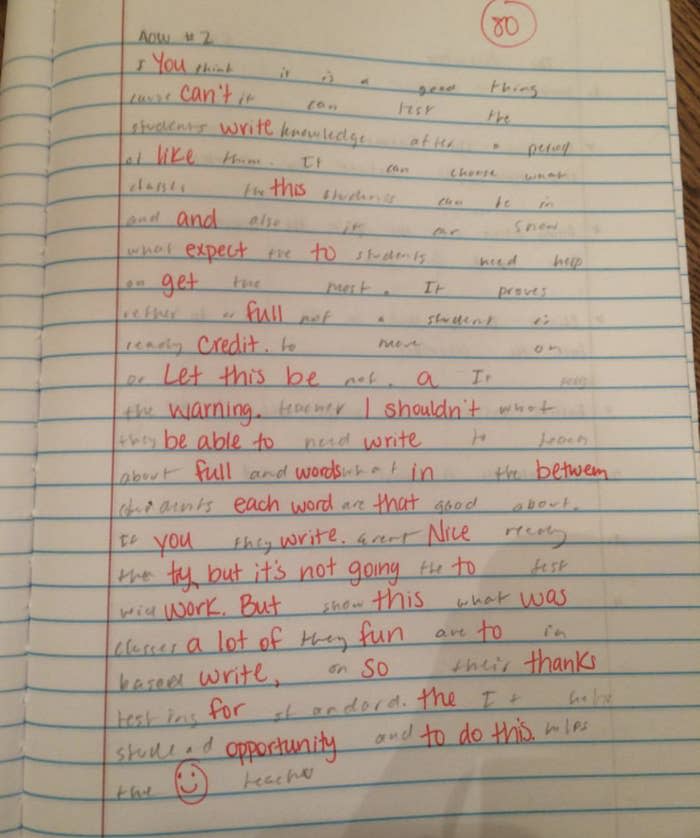 80
AOW #2
I You think it is a good thing
cause can't it can test the
students write knowledge after a period
of like them. It can choose what
classes the this students can be in
and and also it can show
what expect the to students need help
on get the most. It proves
rether or full not a student is
ready credit. to move on
or Let this be not. a It
the warning. teacher I shouldn't what
they be able to need write to teach
about full and words what in the betwem
each word are that good about.
If you they write. aren't Nice ready
then ty, but it's not going the to test
will work. But show this what was
classes a lot of they fun are to in
based write, on so their thanks
testing for standard. the It helps
opportunity and to do this. helps
the teacher